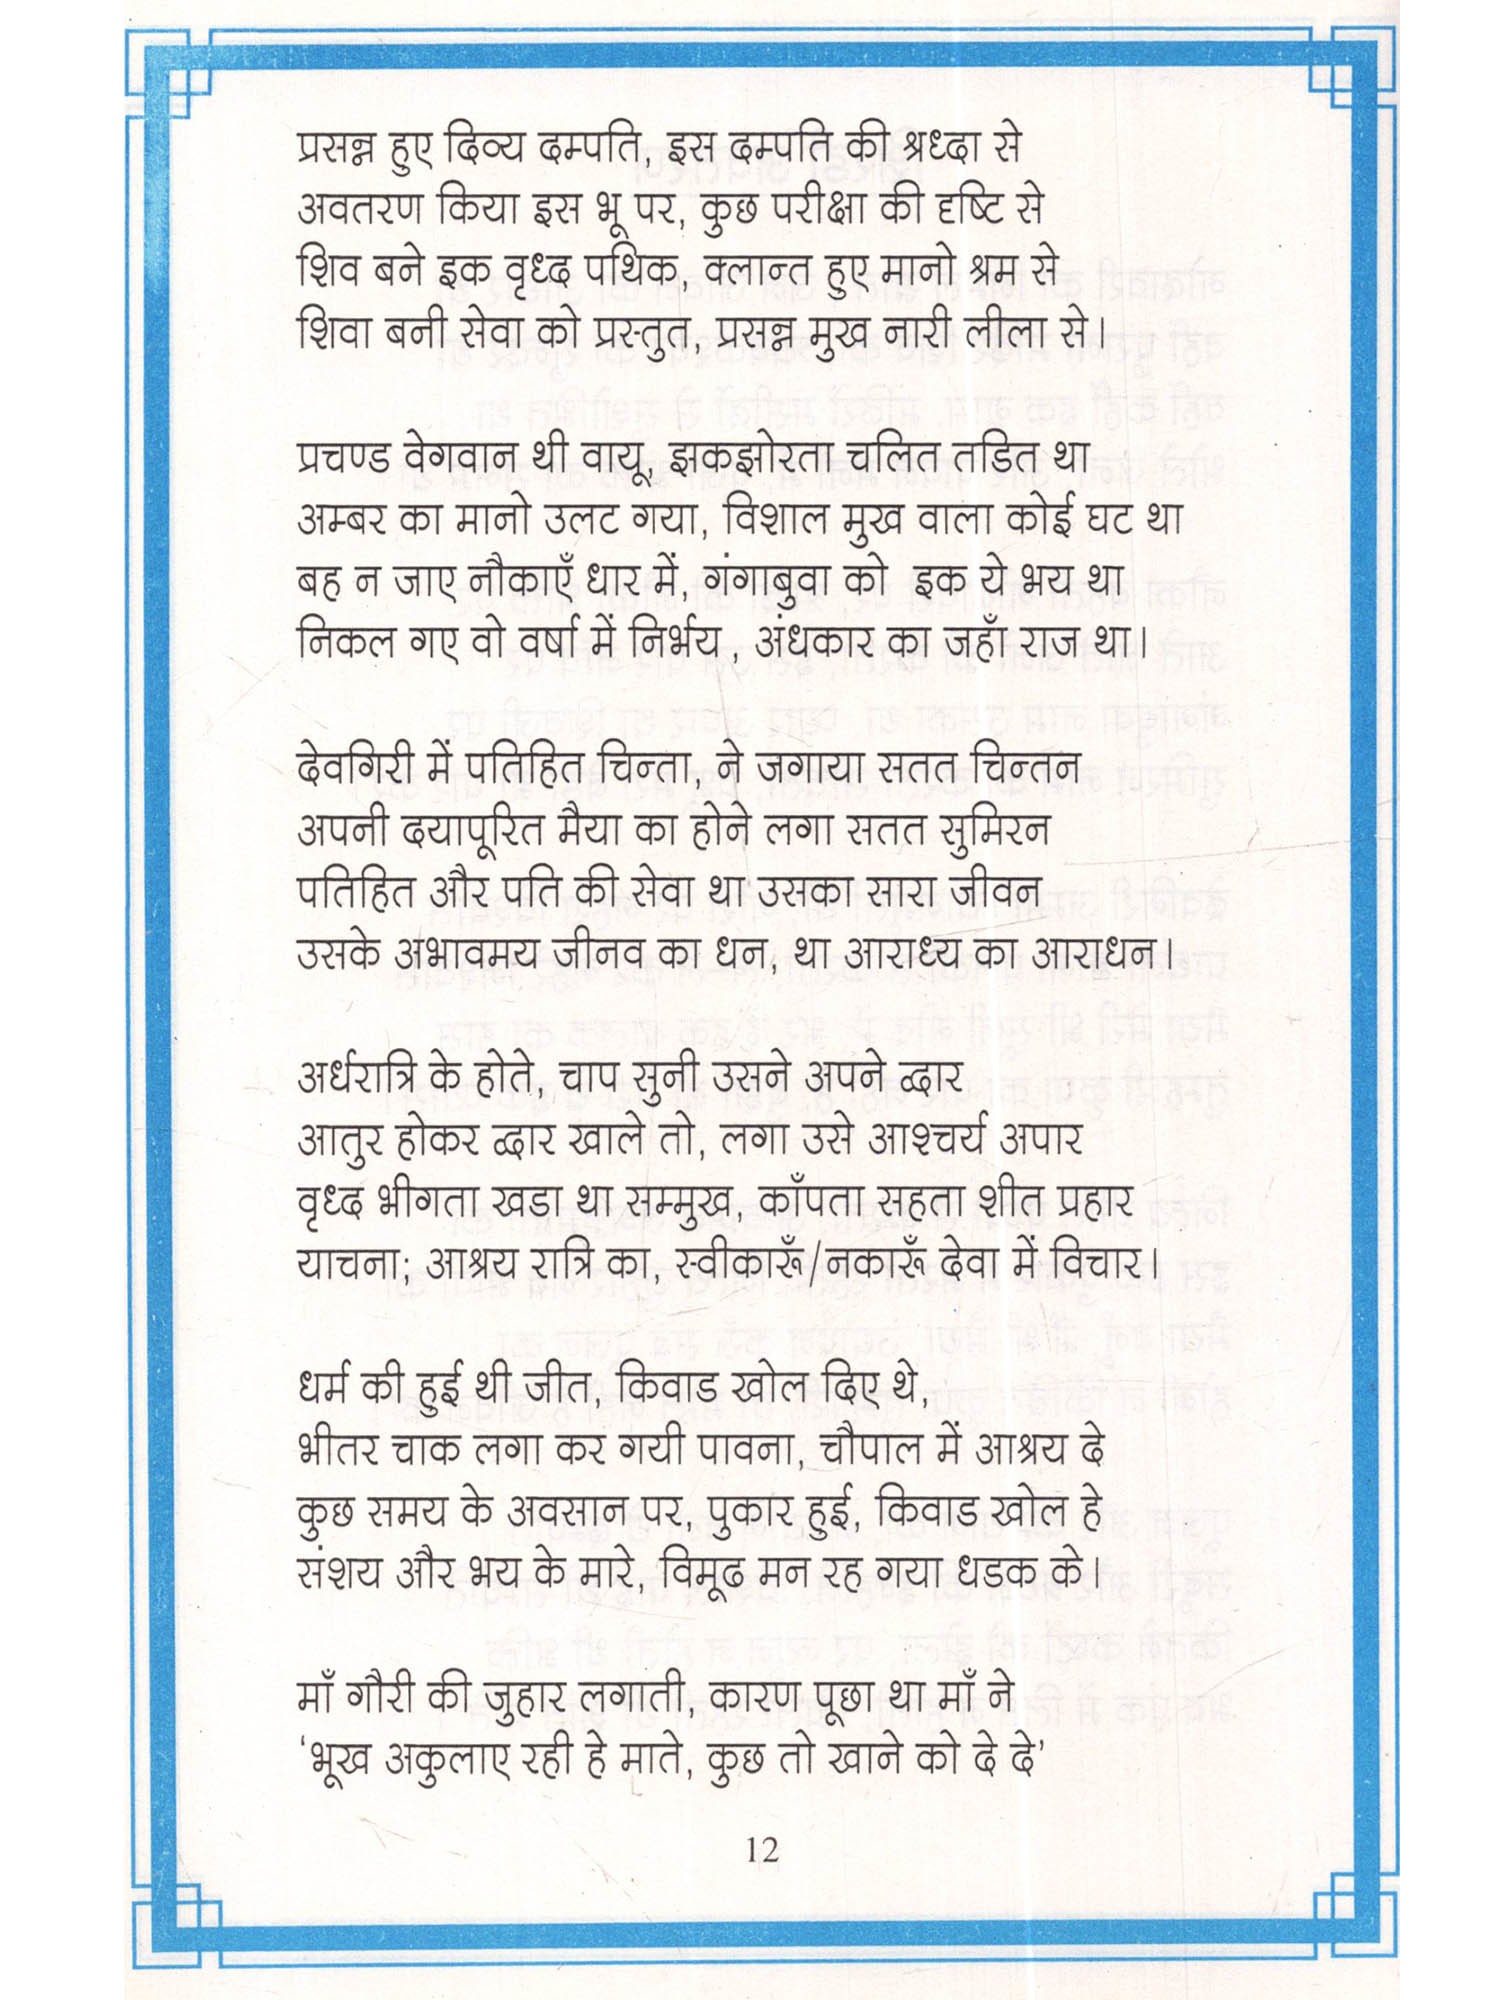 प्रसन्न हुए दिव्य दम्पति, इस दम्पति की श्रध्दा से
अवतरण किया इस भू पर, कुछ परीक्षा की दृष्टि से
शिव बने इक वृध्द पथिक, क्लान्त हुए मानो श्रम से
शिवा बनी सेवा को प्रस्तुत, प्रसन्न मुख नारी लीला से।
प्रचण्ड वेगवान थी वायू, झकझोरता चलित तडित था
अम्बर का मानो उलट गया, विशाल मुख वाला कोई घट था
बह न जाए नौकाएँ धार में, गंगाबुवा को इक ये भय था
निकल गए वो वर्षा में निर्भय, अंधकार का जहाँ राज था।
देवगिरी में पतिहित चिन्ता, ने जगाया सतत चिन्तन
अपनी दयापूरित मैया का होने लगा सतत सुमिरन
पतिहित और पति की सेवा था उसका सारा जीवन
उसके अभावमय जीनव का धन, था आराध्य का आराधन।
अर्धरात्रि के होते, चाप सुनी उसने अपने द्धार
आतुर होकर द्धार खाले तो, लगा उसे आश्चर्य अपार
वृध्द भीगता खडा था सम्मुख, काँपता सहता शीत प्रहार
याचना; आश्रय रात्रि का, स्वीकारूँ/नकारूँ देवा में विचार।
धर्म की हुई थी जीत, किवाड खोल दिए थे,
भीतर चाक लगा कर गयी पावना, चौपाल में आश्रय दे
कुछ समय के अवसान पर, पुकार हुई, किवाड खोल हे
संशय और भय के मारे, विमूढ मन रह गया धडक के।
माँ गौरी की जुहार लगाती, कारण पूछा था माँ ने
‘भूख अकुलाए रही हे माते, कुछ तो खाने को दे दे’
12